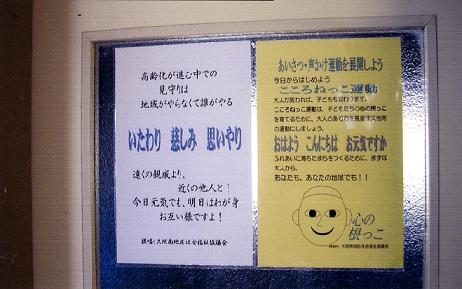 高齢化が進む中での
見守りは
地域がやらなくて誰がやる
いたわり 慈しみ 思いやり
遠くの親戚より、
近くの他人と！
今日元気でも、明日はわが身
お互い様ですよ！
あいさつ・声かけ運動を展開しよう
今日からはじめよう
こころねっこ運動
大人が変われば、子どもも変わります。
こころねっこ運動は、子どもたちの心の根っこ
を育てるために、大人のあり方を見直す
の運動にしましょう。
おはよう こんにちは お元気ですか
ふれあいに育ちたまちをつくるために、まずは
大人から、
あなたも、あなたの地域でも！！
心の
根っこ